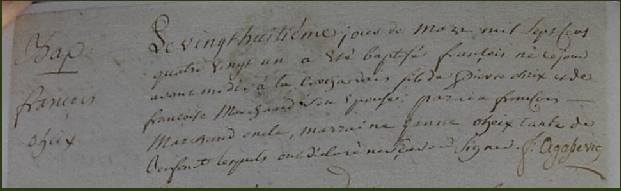 Bap
françois
cheix
Le vingt huitième jour de mars mil sept cent
quatre vingt un a été baptisé françois né ce jour
avant midi à la fils de pierre cheix et de
françoise Marchand son épouse. parain françois
Marchand oncle, marraine cheix tante de
l'enfant lesquels ont déclaré ne savoir signer.